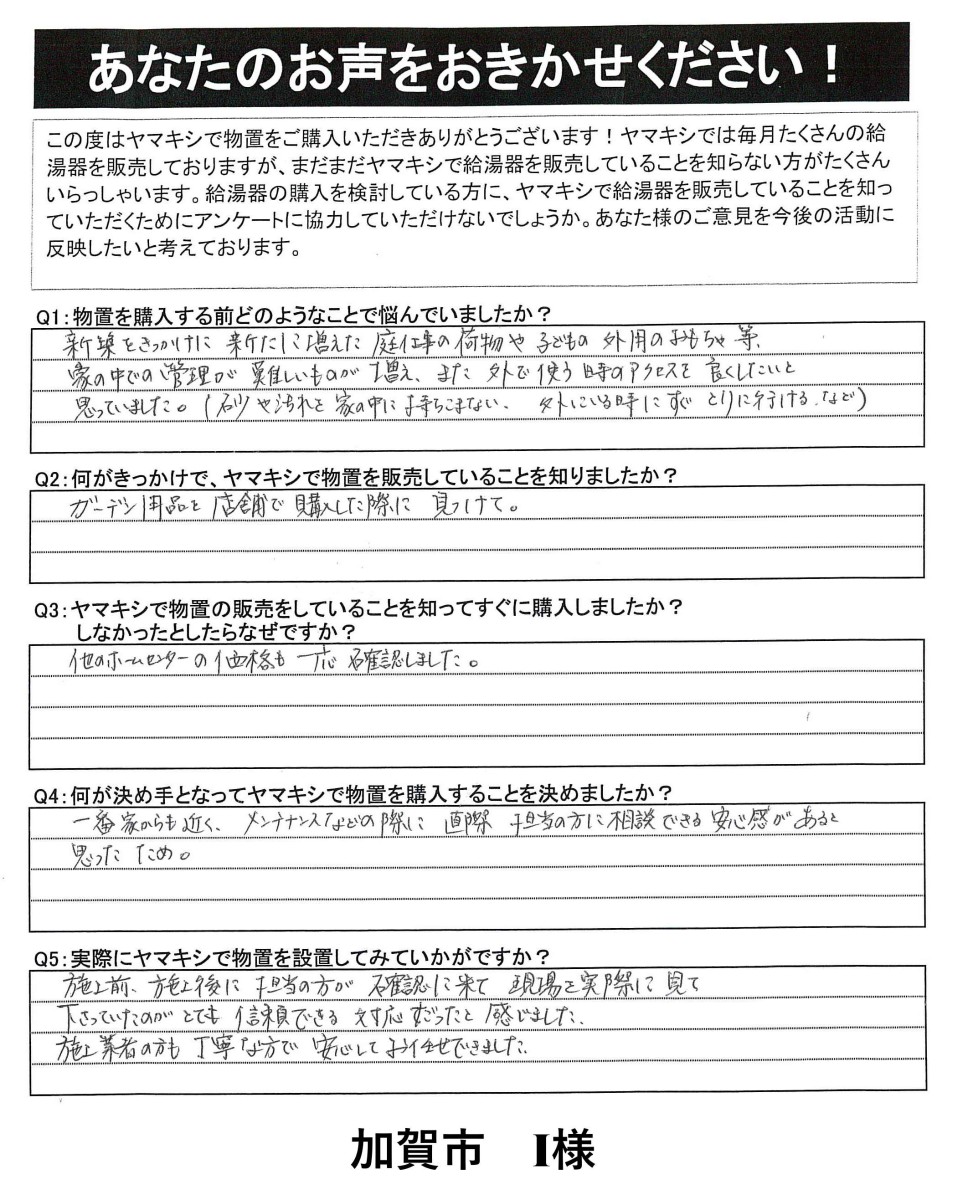 あなたのお声をおきかせください！
この度はヤマキシで物置をご購入いただきありがとうございます！ヤマキシでは毎月たくさんの給
湯器を販売しておりますが、まだまだヤマキシで給湯器を販売していることを知らない方がたくさん
いらっしゃいます。給湯器の購入を検討している方に、ヤマキシで給湯器を販売していることを知っ
ていただくためにアンケートに協力していただけないでしょうか。あなた様のご意見を今後の活動に
反映したいと考えております。
Q1：物置を購入する前どのようなことで悩んでいましたか？
新築をきっかけに 新たに増えた 庭仕事の荷物や 子どもの 外用のおもちゃ 等、
家の中での管理が 難しいものが 増え、また 外で使う 時のアクセスを 良くしたいと
思っていました。（砂や汚れを 家の中に持ちこまない、外にいる時に すぐ とりに行ける、など）
Q2：何がきっかけで、ヤマキシで物置を販売していることを知りましたか？
ガーデン用品を 店舗で 購入した際に 見つけて。
Q3：ヤマキシで物置の販売をしていることを知ってすぐに購入しましたか？
しなかったとしたらなぜですか？
他のホームセンターの 価格も 一応 確認しました。
Q4：何が決め手となってヤマキシで物置を購入することを決めましたか？
一番 家からも近く、メンテナンスなどの際に 直際 担当の方に相談できる 安心感があると
思った ため。
Q5：実際にヤマキシで物置を設置してみていかがですか？
施工前、施工後に 担当の方が 確認に来て 現場を実際に見て
下さっていたのが とても 信頼できる 対応だったと 感じました。
施工業者の方も 丁寧な方で 安心して お任せできました。
加賀市 I様